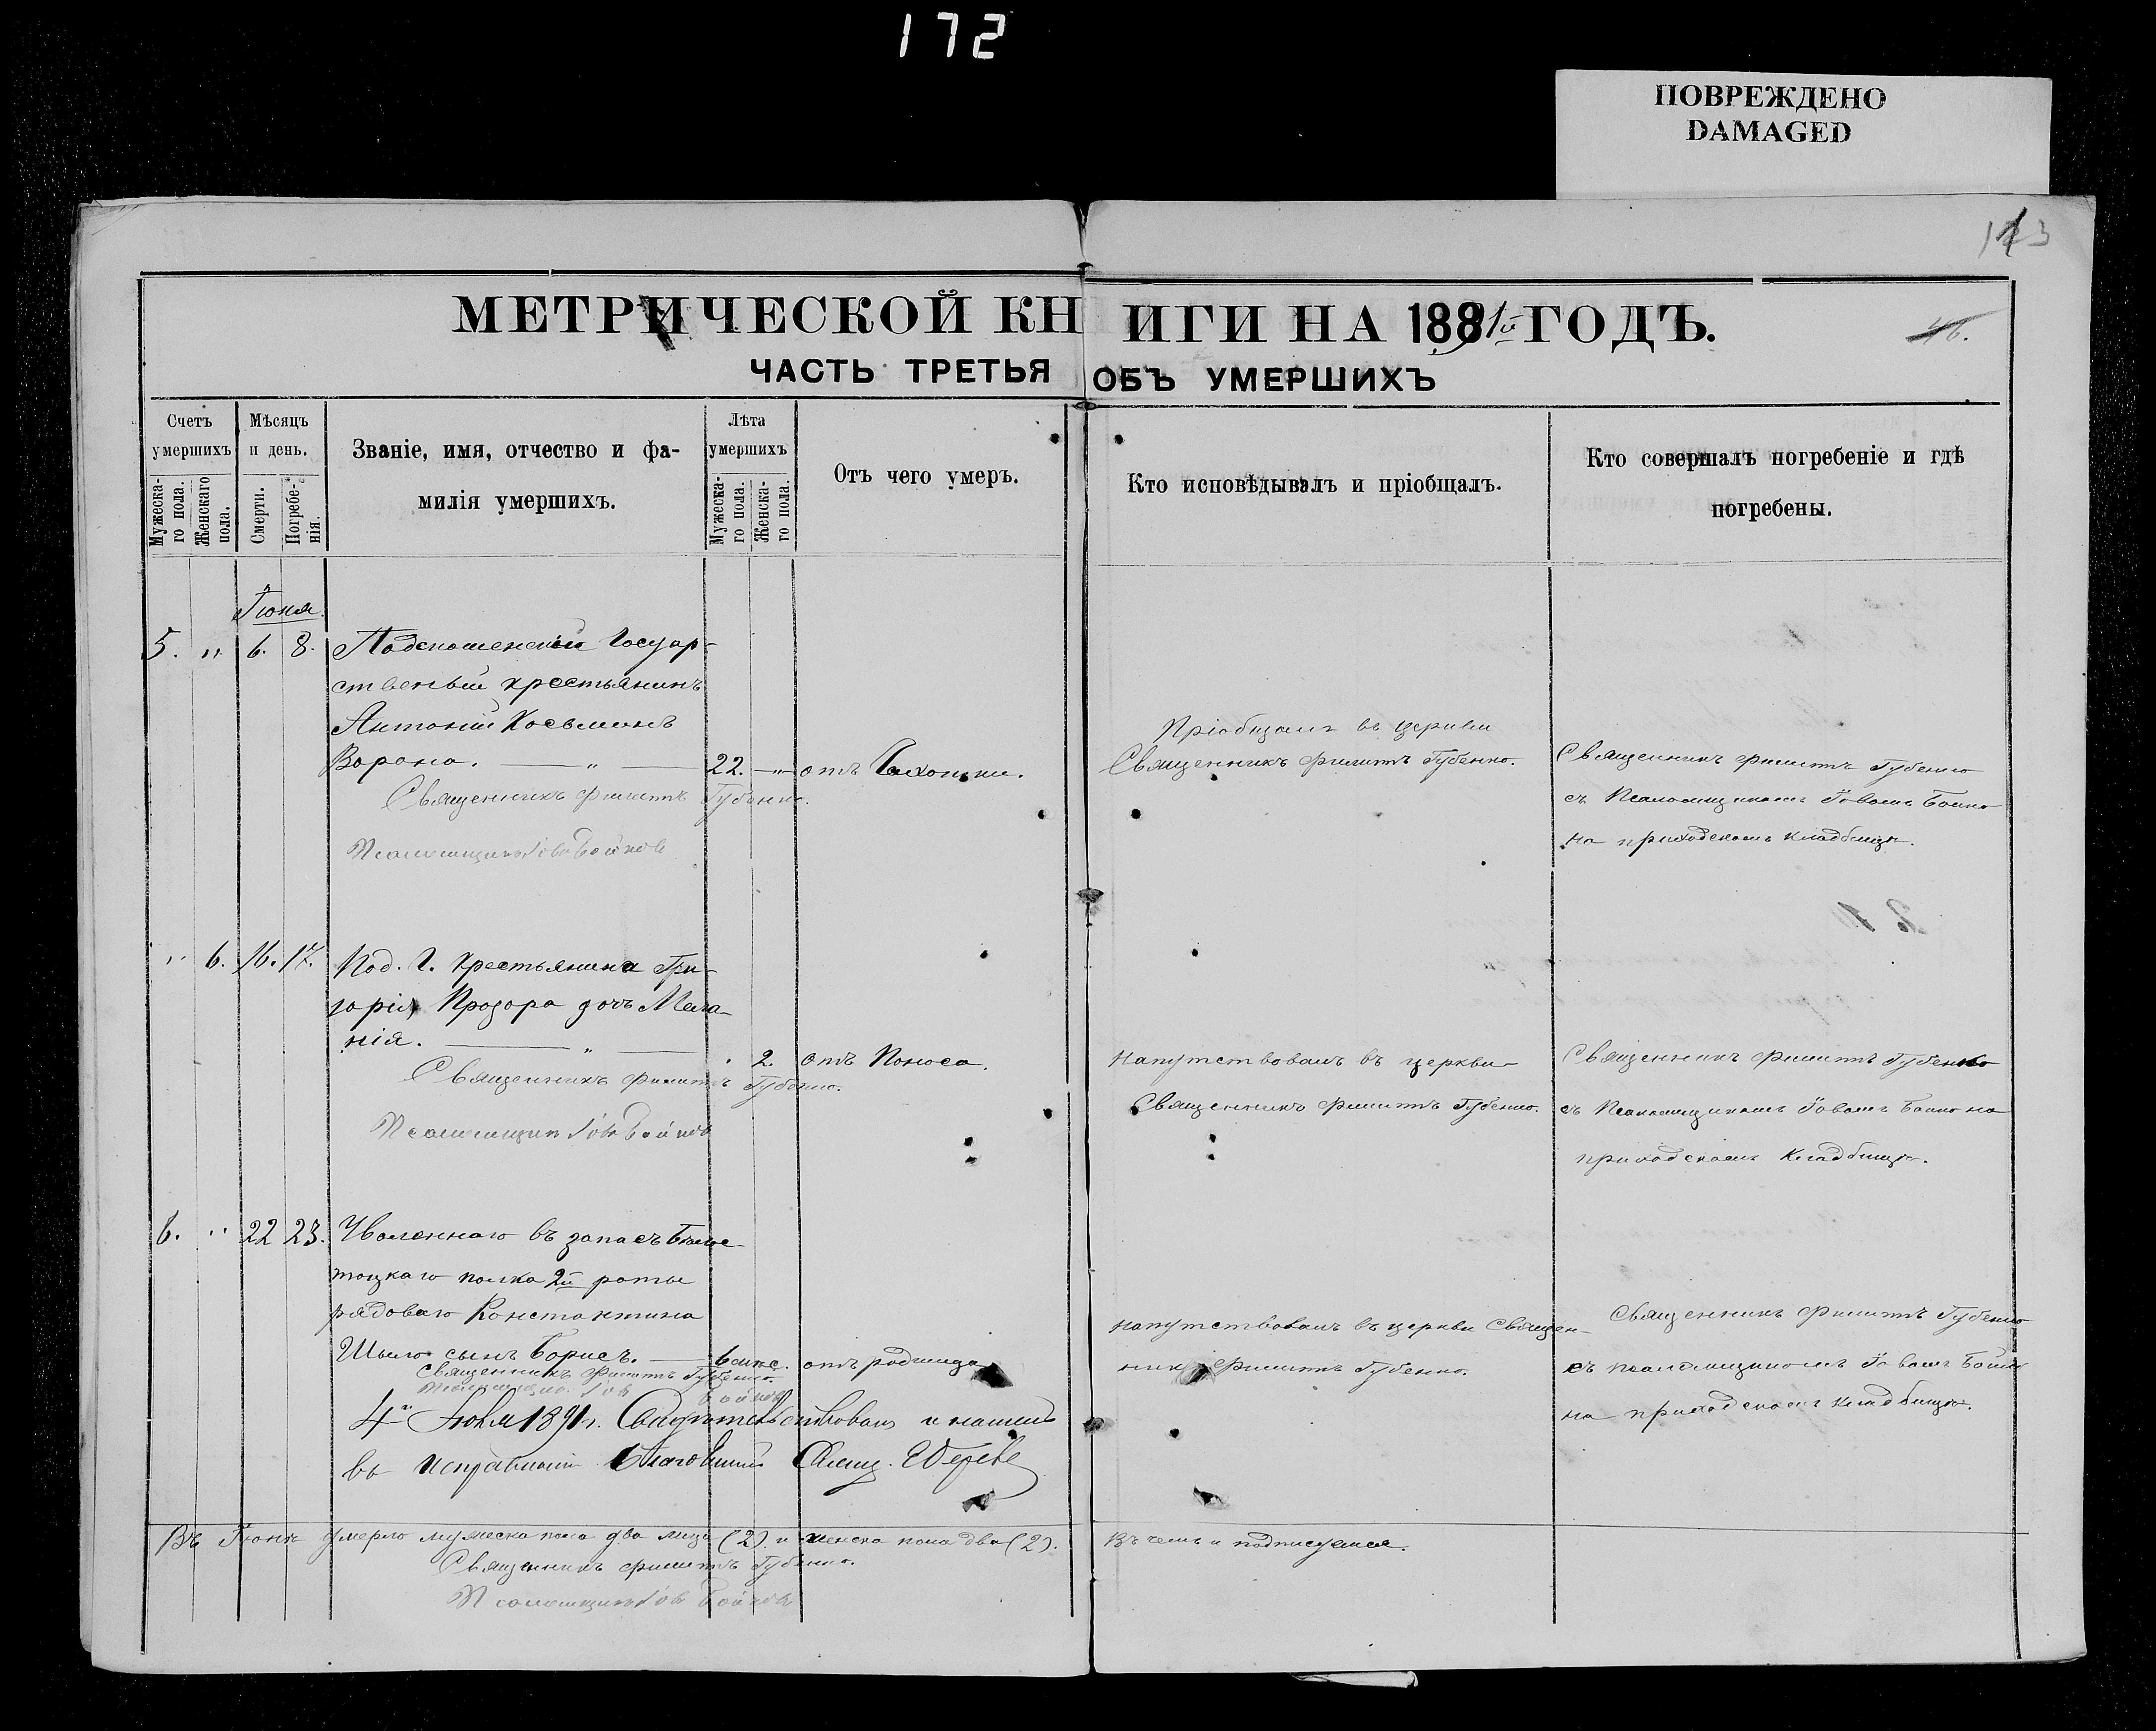 172
ПОВРЕЖДЕНО
DAMAGED
МЕТРИЧЕСКОЙ КНИГИ НА 1891й ГОДЪ.
46.
ЧАСТЬ ТРЕТЬЯ ОБЪ УМЕРШИХЪ
Счетъ умершихъ
Мужеска-го пола.
Женскаго пола.
Мѣсяцъ и день.
Смерти.
Погребе-нія.
Званіе, имя, отчество и фа-
милія умершихъ.
Лѣта умершихъ
Мужеска-го пола.
Женска-го пола.
Отъ чего умеръ.
Кто исповѣдывалъ и пріобщалъ.
Кто совершалъ погребеніе и гдѣ
погребены.
Іюня.
5. „ 6. 8.
Государ-
ственый крестьянинъ
Антоній Косьминъ
Ворона. — „ — 22. — „ — отъ Чахотки.
Священникъ Филиппъ Губенко.
Псаломщикъ Іовъ Бойковъ
Пріобщалъ въ церкви
Священникъ Филиппъ Губенко.
Священникъ Филиппъ Губенко
съ Псаломщикомъ Іовомъ Бойко
на приходскомъ кладбищѣ.
„ 6. 16. 17.
Под. Г. крестьянина Гри-
горія Прозора дочь Мела-
нія. — „ — 2. отъ Поноса.
Священникъ Филиппъ Губенко.
Псаломщикъ Іовъ Бойковъ
Напутствовалъ въ церкви
Священникъ Филиппъ Губенко.
Священникъ Филиппъ Губенко
съ Псаломщикомъ Іовомъ Бойко на
приходскомъ кладбищѣ.
6. „ 22 23.
Уволеннаго въ запасъ Бѣлос-
тоцкаго полка 2й роты
рядоваго Константина
сынъ Борисъ. — 6 мѣс. отъ родимца
Священникъ Филиппъ Губенко.
Псаломщикъ Іовъ Бойковъ
напутствовалъ въ церкви Священ-
никъ Филиппъ Губенко.
Священникъ Филиппъ Губенко
съ псаломщикомъ Іовомъ Бойко
на приходскомъ кладбищѣ.
4го Іюля 1891 г. Свидѣтельствовалъ и нашелъ
въ исправности Благочинный Свящ.
Въ Іюнѣ умерло мужеска пола два лица (2) и женска пола двѣ (2). Въ чемъ и подписуемся.
Священникъ Филиппъ Губенко.
Псаломщикъ Іовъ Бойковъ